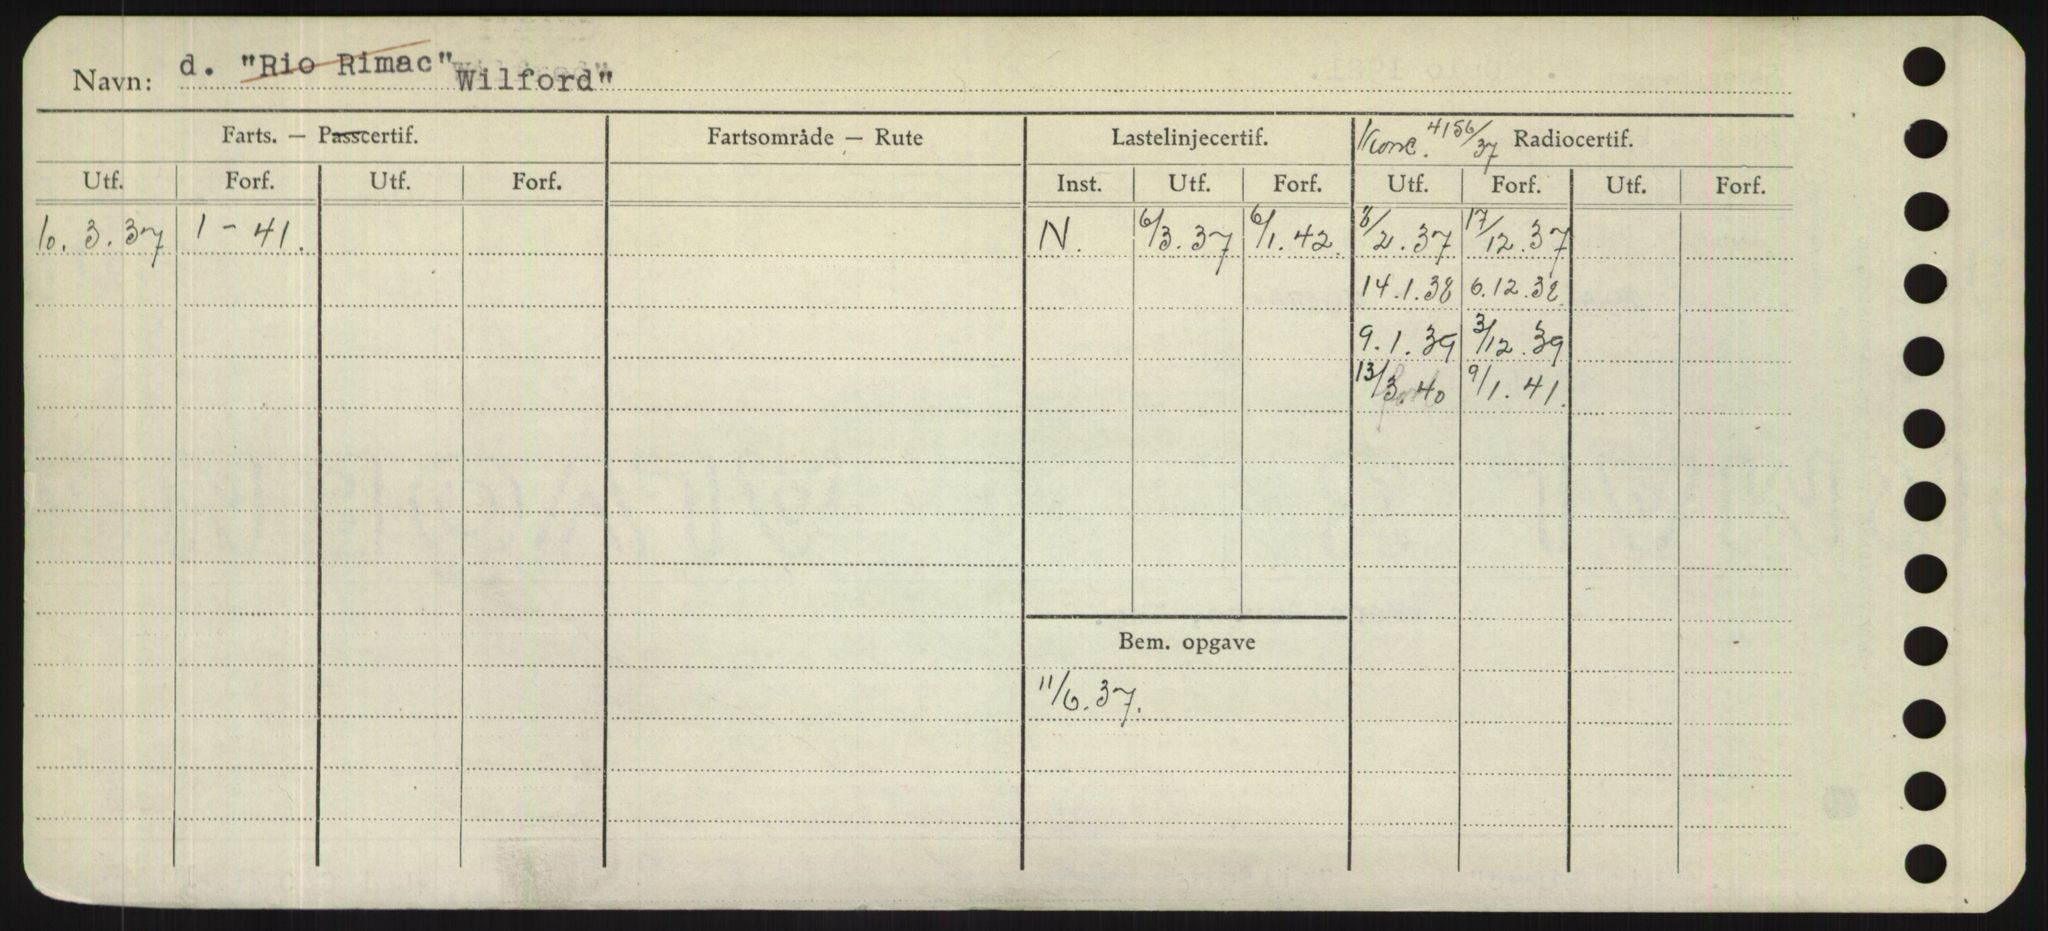 Navn: d. "Rio Rimac" Wilford"
Farts. — Passcertif. Fartsområde — Rute Lastelinjecertif. Konc. 4156/37 Radiocertif.
Utf. Forf. Utf. Forf. Inst. Utf. Forf. Utf. Forf. Utf. Forf.
10. 3. 37 1 - 41. N. 6/3. 37 6/1. 42. 3/2. 37 17/12. 37
14. 1. 38 6. 12. 38
9. 1. 39 3/12. 39
13/3. 40 9/1. 41.
Bem. opgave
11/6. 37.